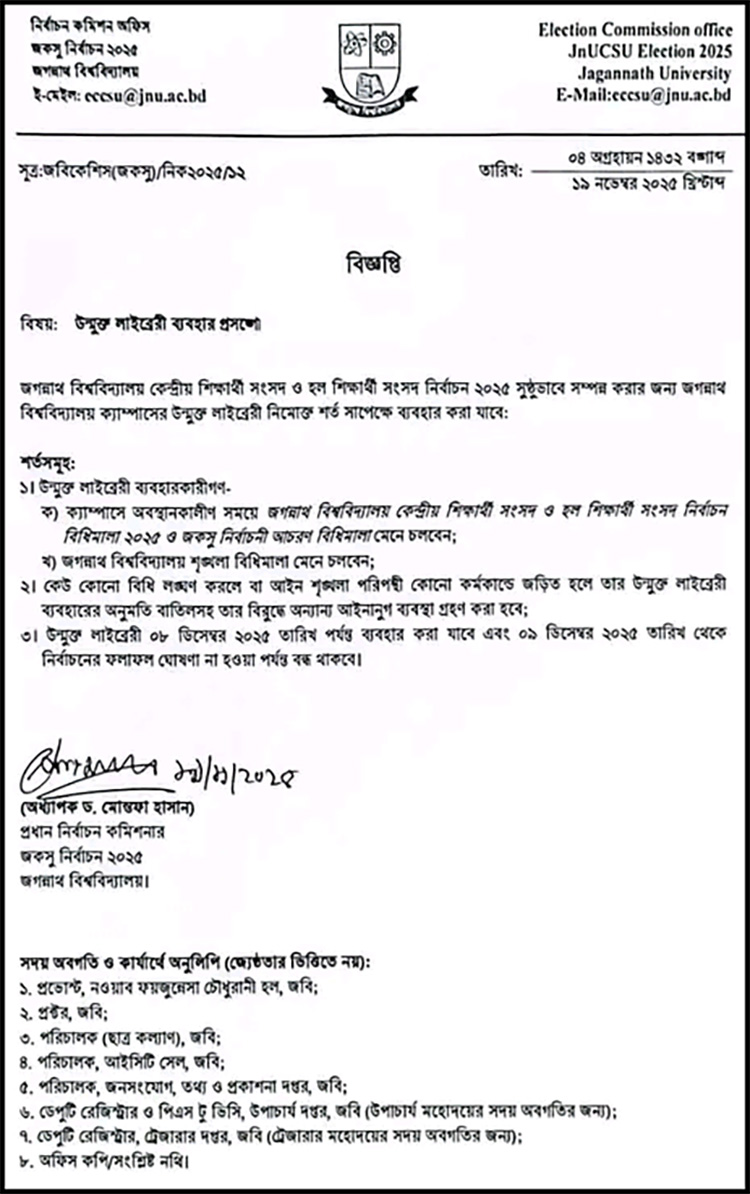 নির্বাচন কমিশন অফিস
জকসু নির্বাচন ২০২৫
জগন্নাথ বিশ্ববিদ্যালয়
ই-মেইল: eccsu@jnu.ac.bd
Election Commission office
JnUCSU Election 2025
Jagannath University
E-Mail:eccsu@jnu.ac.bd
সূত্র:জবিকেশিস(জকসু)/নিক২০২৫/১২
তারিখ: ০৪ অগ্রহায়ন ১৪৩২ বঙ্গাব্দ
১৯ নভেম্বর ২০২৫ খ্রিস্টাব্দ
বিজ্ঞপ্তি
বিষয়: উন্মুক্ত লাইব্রেরী ব্যবহার প্রসঙ্গে
জগন্নাথ বিশ্ববিদ্যালয় কেন্দ্রীয় শিক্ষার্থী সংসদ ও হল শিক্ষার্থী সংসদ নির্বাচন ২০২৫ সুষ্ঠুভাবে সম্পন্ন করার জন্য জগন্নাথ
বিশ্ববিদ্যালয় ক্যাম্পাসের উন্মুক্ত লাইব্রেরী নিমোক্ত শর্ত সাপেক্ষে ব্যবহার করা যাবে:
শর্তসমূহ:
১। উন্মুক্ত লাইব্রেরী ব্যবহারকারীগণ-
ক) ক্যাম্পাসে অবস্থানকালীণ সময়ে জগন্নাথ বিশ্ববিদ্যালয় কেন্দ্রীয় শিক্ষার্থী সংসদ ও হল শিক্ষার্থী সংসদ নির্বাচন
বিধিমালা ২০২৫ ও জকসু নির্বাচনী আচরণ বিধিমালা মেনে চলবেন;
খ) জগন্নাথ বিশ্ববিদ্যালয় শৃঙ্খলা বিধিমালা মেনে চলবেন;
২। কেউ কোনো বিধি লঙ্ঘণ করলে বা আইন শৃঙ্খলা পরিপন্থী কোনো কর্মকান্ডে জড়িত হলে তার উন্মুক্ত লাইব্রেরী
ব্যবহারের অনুমতি বাতিলসহ তার বিরুদ্ধে অন্যান্য আইনানুগ ব্যবস্থা গ্রহণ করা হবে;
৩। উন্মুক্ত লাইব্রেরী ০৮ ডিসেম্বর ২০২৫ তারিখ পর্যন্ত ব্যবহার করা যাবে এবং ০৯ ডিসেম্বর ২০২৫ তারিখ থেকে
নির্বাচনের ফলাফল ঘোষণা না হওয়া পর্যন্ত বন্ধ থাকবে।
১৯/১১/২০২৫
(অধ্যাপক ড. মোস্তফা হাসান)
প্রধান নির্বাচন কমিশনার
জকসু নির্বাচন ২০২৫
জগন্নাথ বিশ্ববিদ্যালয়।
সদয় অবগতি ও কার্যার্থে অনুলিপি (জ্যেষ্ঠতার ভিত্তিতে নয়):
১. প্রভোস্ট, নওয়াব ফয়জুন্নেসা চৌধুরানী হল, জবি;
২. প্রক্টর, জবি;
৩. পরিচালক (ছাত্র কল্যাণ), জবি;
৪. পরিচালক, আইসিটি সেল, জবি;
৫. পরিচালক, জনসংযোগ, তথ্য ও প্রকাশনা দপ্তর, জবি;
৬. ডেপুটি রেজিস্ট্রার ও পিএস টু ভিসি, উপাচার্য দপ্তর, জবি (উপাচার্য মহোদয়ের সদয় অবগতির জন্য);
৭. ডেপুটি রেজিস্ট্রার, ট্রেজারার দপ্তর, জবি (ট্রেজারার মহোদয়ের সদয় অবগতির জন্য);
৮. অফিস কপি/সংশ্লিষ্ট নথি।